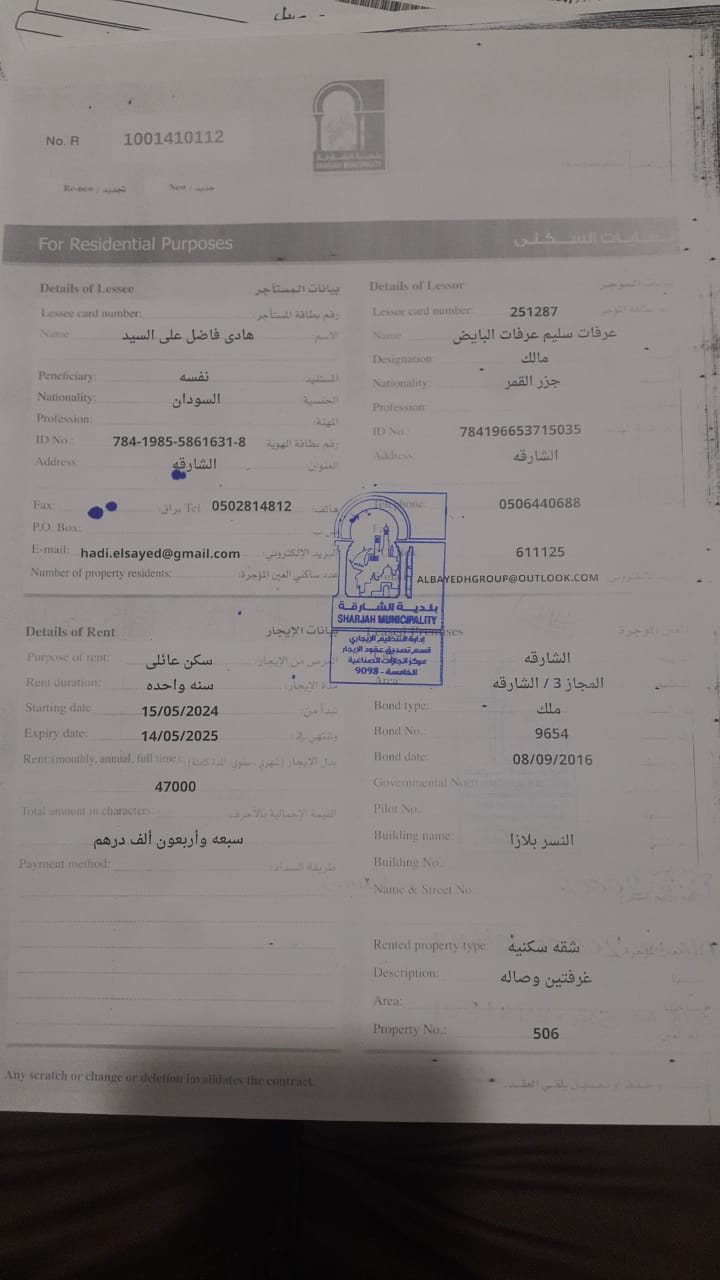 No. R 1001410112
بلدية الشارقة
SHARJAH MUNICIPALITY
Re-new / تجديد New / جديد
For Residential Purposes
Details of Lessee بيانات المستأجر
Lessee card number: رقم بطاقة المستأجر:
Name هادى فاضل على السيد الاسم:
Peneficiary: نفسه المستفيد:
Nationality: السودان الجنسية:
Profession: المهنة:
ID No.: 784-1985-5861631-8 رقم بطاقة الهوية
Address: الشارقه العنوان
Fax: براق: Tel 0502814812 هاتف:
P.O. Box:
E-mail: hadi.elsayed@gmail.com البريد الإلكتروني:
Number of property residents: عدد ساكني العين المؤجرة:
Details of Lessor بيانات الموجر
Lessor card number: 251287
Name عرفات سليم عرفات البايض
Designation: مالك
Nationality: جزر القمر
Profession:
ID No.: 784196653715035
Address: الشارقه
Telephone: 0506440688
611125
ALBAYEDHGROUP@OUTLOOK.COM
بلدية الشارقة
SHARJAH MUNICIPALITY
إدارة التنظيم الإيجاري
قسم تصديق عقود الإيجار
مركز انجازات الصناعية
الخامسة - 9098
Details of Rent بيانات الايجار
Purpose of rent: سكن عائلى الغرض من الإيجار:
Rent duration: سنه واحده مدة الايجار:
Starting date 15/05/2024 تبدأ من:
Expiry date: 14/05/2025 وتنتهي في:
Rent:(monthly, annual, full time): بدل الإيجار (شهري ، سنوي ، المدة كاملة):
47000
Total amount in characters: القيمة الاجمالية بالأحرف:
سبعه وأربعون ألف درهم
Payment method: طريقة السداد:
Premises العين الموجرة
الشارقه
Area: المجاز 3 / الشارقه
Bond type: ملك
Bond No.: 9654
Bond date: 08/09/2016
Governmental No
Pilot No.
Building name: النسر بلازا
Building No.:
Name & Street No.
Rented property type: شقه سكنيه
Description: غرفتين وصاله
Area:
Property No.: 506
Any scratch or change or deletion invalidates the contract.